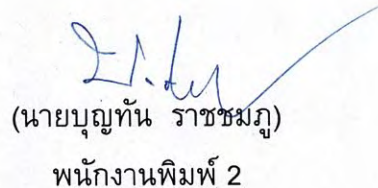 (นายบุญทัน ราชชมภู)
พนักงานพิมพ์ 2